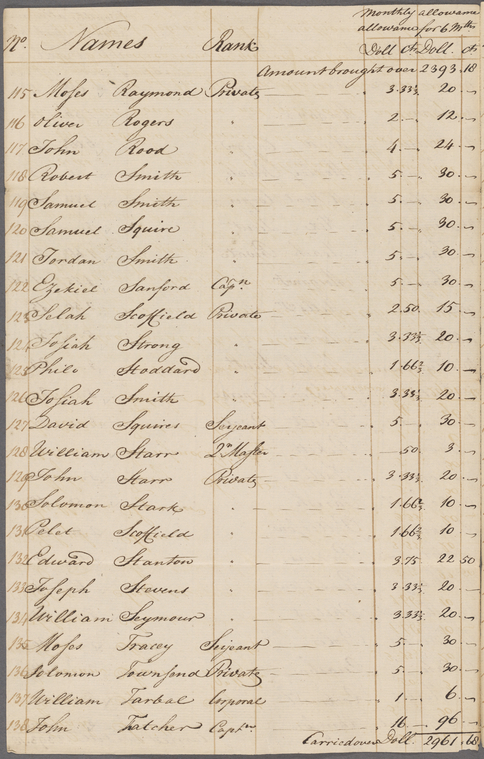 Monthly allowance
allowance for 6 Mths
No. Names Rank Doll cts Doll. cts
Amount brought over 2393.18
115 Moses Raymond Private 3.33⅓ 20 –
116 Oliver Rogers 2 – 12 –
117 John Rood 4 – 24 –
118 Robert Smith 5 – 30 –
119 Samuel Smith 5 – 30 –
120 Samuel Squire 5 – 30 –
121 Jordan Smith 5 – 30 –
122 Ezekiel Sanford Capn 5 – 30 –
123 Selah Scoffield Private 2.50 15 –
124 Josiah Strong 3.33⅓ 20 –
125 Philo Stoddard 1.66⅔ 10 –
126 Josiah Smith 3.33⅓ 20 –
127 David Squires Serjeant 5 – 30 –
128 William Starr Qr Master .50 3 –
129 John Starr Private 3.33⅓ 20 –
130 Solomon Stark 1.66⅔ 10 –
131 Pelet Scoffield 1.66⅔ 10 –
132 Edward Stanton 3.75 22.50
133 Joseph Stevens 3.33⅓ 20 –
134 William Seymour 3.33⅓ 20 –
135 Moses Tracey Serjeant 5 – 30 –
136 Solomon Townsend Private 5 – 30 –
137 William Tarbal Corporal 1 – 6 –
138 John Tatcher Captn 16 – 96 –
Carried over Doll. 2961.68